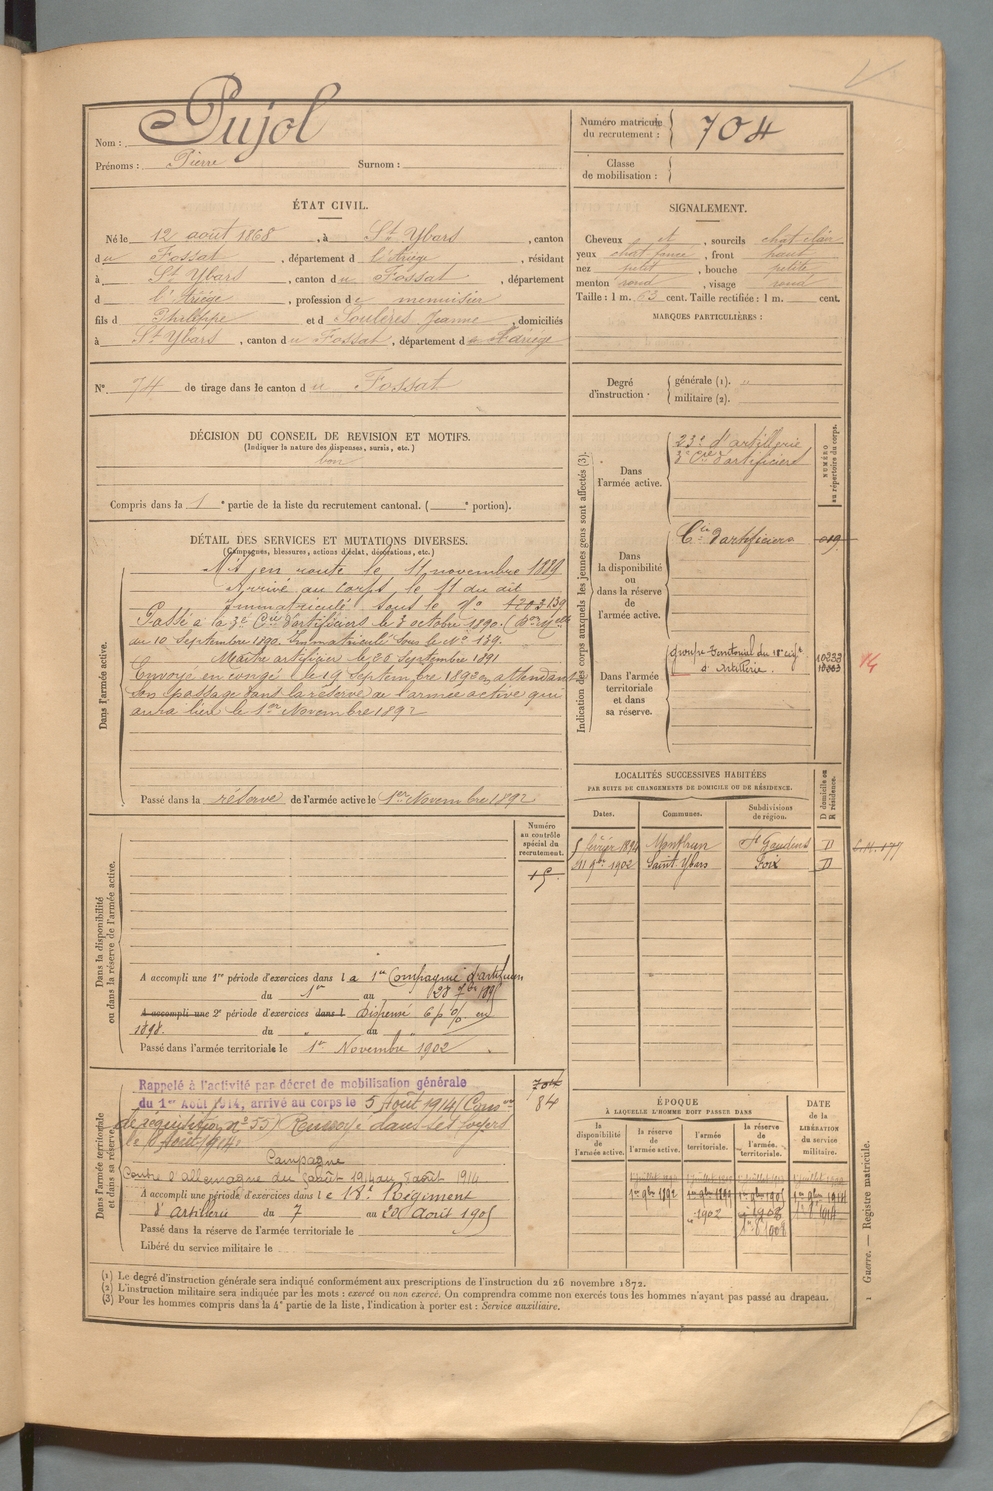 Nom : Pujol
Prénoms : Pierre Surnom :
Numéro matricule du recrutement : 704
Classe de mobilisation :
ÉTAT CIVIL.
Né le 12 août 1868, à St Ybars, canton
du Fossat, département d l'Ariège, résidant
à St Ybars, canton du Fossat, département
d l'Ariège, profession de menuisier
fils d Philippe et d Soulères Jeanne, domiciliés
à St Ybars, canton du Fossat, département d Ariège
N° 74 de tirage dans le canton du Fossat
SIGNALEMENT.
Cheveux et , sourcils chat clair
yeux chat foncé, front haut
nez petit, bouche petite
menton rond, visage rond
Taille : 1 m. 63 cent. Taille rectifiée : 1 m. cent.
MARQUES PARTICULIÈRES :
Degré d'instruction : générale (1). "
militaire (2).
DÉCISION DU CONSEIL DE REVISION ET MOTIFS.
(Indiquer la nature des dispenses, sursis, etc.)
bon
Compris dans la 1e partie de la liste du recrutement cantonal. ( e portion).
DÉTAIL DES SERVICES ET MUTATIONS DIVERSES.
(Campagnes, blessures, actions d'éclat, décorations, etc.)
Dans l'armée active.
Mis en route le 11 novembre 1889
Arrivé au corps le 11 du dit
Immatriculé sous le N°
Passé à la 3e Cie d'artificiers le 3 octobre 1890.
du 10 Septembre 1890. Immatriculé sous le N° 139.
Maître artificier le 20 Septembre 1891
Envoyé en congé le 19 Septembre 1892 en attendant
son passage dans la réserve de l'armée active qui
aura lieu le 1er Novembre 1892
Passé dans la réserve de l'armée active le 1er Novembre 1892
Indication des corps auxquels les jeunes gens sont affectés (3).
NUMÉRO au répertoire du corps.
Dans l'armée active.
23e d'artillerie
3e Cie d'artificiers
Dans la disponibilité ou dans la réserve de l'armée active.
Cie d'artificiers
Dans l'armée territoriale et dans sa réserve.
groupe territorial du 18e régt
d'Artillerie.
LOCALITÉS SUCCESSIVES HABITÉES
PAR SUITE DE CHANGEMENTS DE DOMICILE OU DE RÉSIDENCE.
Dates. Communes. Subdivisions de région. D domicile ou R résidence.
5 février 1894 Monthrun St Gaudens D
9bre 1902 Saint-Ybars Foix D
Dans la disponibilité ou dans la réserve de l'armée active.
Numéro au contrôle spécial du recrutement.
15
A accompli une 1re période d'exercices dans la 1re Compagnie d'artificiers
du 1er au 28 7bre
A accompli une 2e période d'exercices dans l Dispensé en
1898. du " au "
Passé dans l'armée territoriale le 1er Novembre 1902
Dans l'armée territoriale et dans sa réserve.
704
84
Rappelé à l'activité par décret de mobilisation générale
du 1er Août 1914, arrivé au corps le 5 Août 1914 (Comon
de réquisition n° 55) Renvoyé dans ses foyers
le Août 1914.
Campagne
Contre l'allemagne du août 1914 au août 1914
A accompli une période d'exercices dans le 18e Régiment
d'artillerie du 7 au 20 Août 1905
Passé dans la réserve de l'armée territoriale le
Libéré du service militaire le
ÉPOQUE
À LAQUELLE L'HOMME DOIT PASSER DANS
la disponibilité de l'armée active. la réserve de l'armée active. l'armée territoriale. la réserve de l'armée territoriale.
DATE de la LIBÉRATION du service militaire.
1er 9bre 1892
1902 1908
(1) Le degré d'instruction générale sera indiqué conformément aux prescriptions de l'instruction du 26 novembre 1872.
(2) L'instruction militaire sera indiquée par les mots : exercé ou non exercé. On comprendra comme non exercés tous les hommes n'ayant pas passé au drapeau.
(3) Pour les hommes compris dans la 4e partie de la liste, l'indication à porter est : Service auxiliaire.
1 Guerre. — Registre matricule.